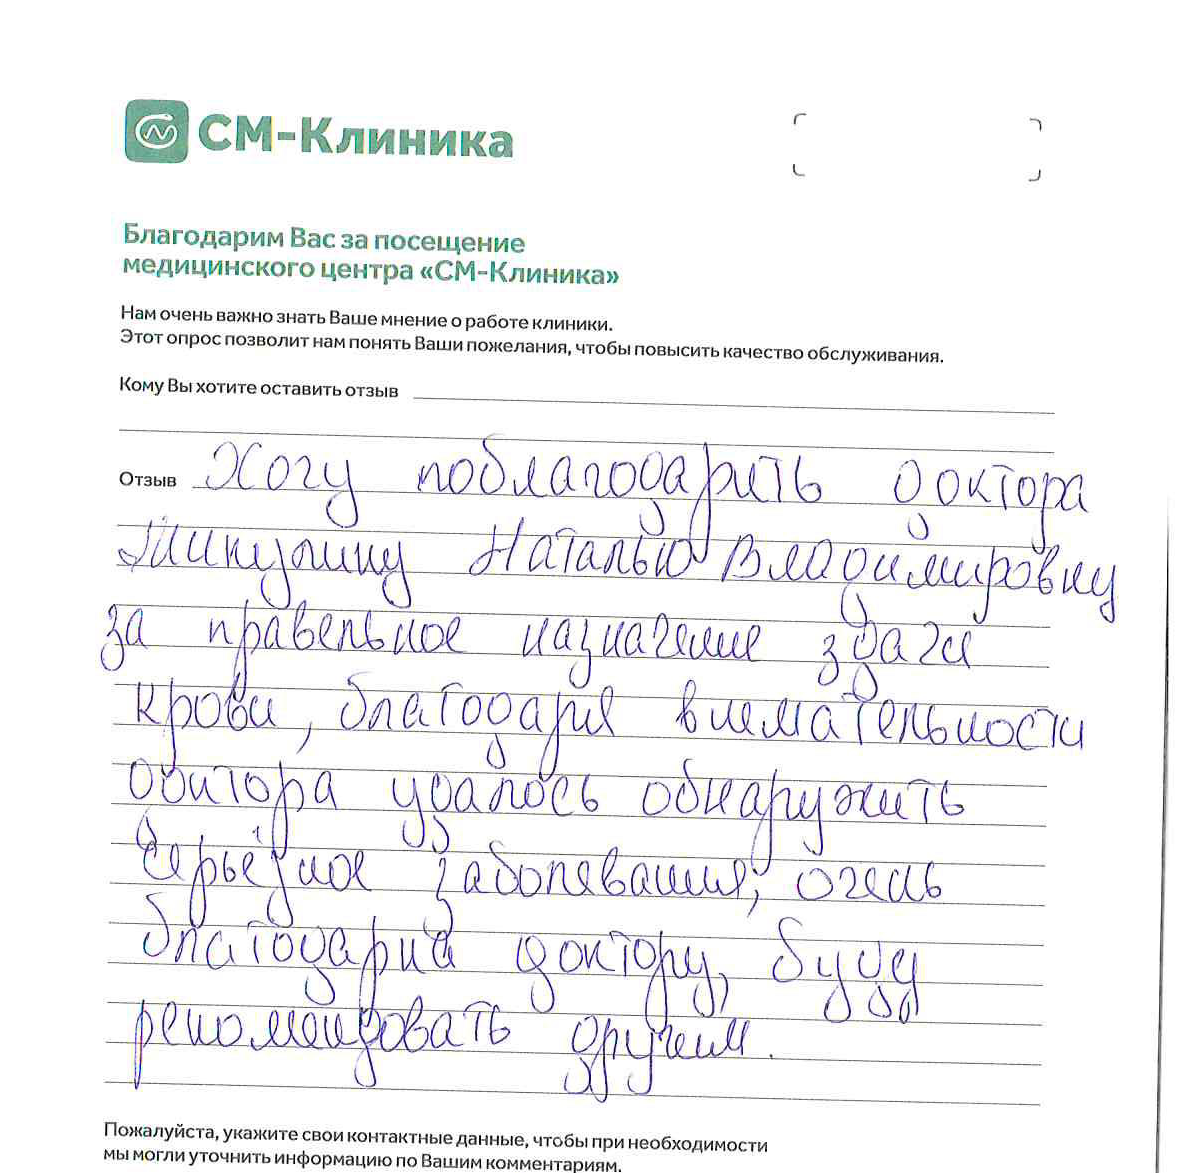 СМ-Клиника
Благодарим Вас за посещение
медицинского центра «СМ-Клиника»
Нам очень важно знать Ваше мнение о работе клиники.
Этот опрос позволит нам понять Ваши пожелания, чтобы повысить качество обслуживания.
Кому Вы хотите оставить отзыв
Отзыв Хочу поблагодарить доктора
Микулину Наталью Владимировну
за правельное назначение здачи
крови, благодаря внемательности
доктора удалось обнаружить
серьёзное заболевания, очень
благодарна доктору, буду
рекомендовать другим.
Пожалуйста, укажите свои контактные данные, чтобы при необходимости
мы могли уточнить информацию по Вашим комментариям.